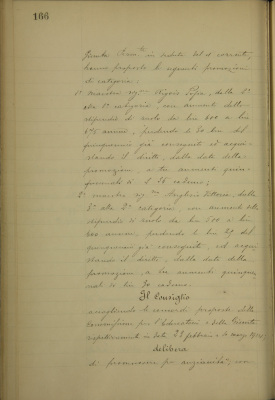 166
Giunta Com.le in seduta del 2 corrente,
hanno proposto le seguenti promozioni
di categoria:
1° maestra sig.na Luisa, dalla 2a
alla 1a categoria, con aumento dello
stipendio di ruolo da lire 600 a lire
675 annue, perdendo le 60 lire del
quinquennio già conseguito ed acqui-
stando il diritto, dalla data della
promozione, a tre aumenti quin-
quennali di L. cadauno;
2° maestra sig.na Vittoria, dalla
3a alla 2a categoria, con aumento dello
stipendio di ruolo da lire 500 a lire
600 annue, perdendo le lire del
quinquennio già conseguito, ed acqui-
stando il diritto, dalla data della
promozione, a tre aumenti quinquen-
nali di lire cadauno.
Il Consiglio
accogliendo le concordi proposte della
Commissione per l'Educatori e della Giunta
rispettivamente in data 22 febbraio e 2 marzo
delibera
di promuovere per anzianità, con